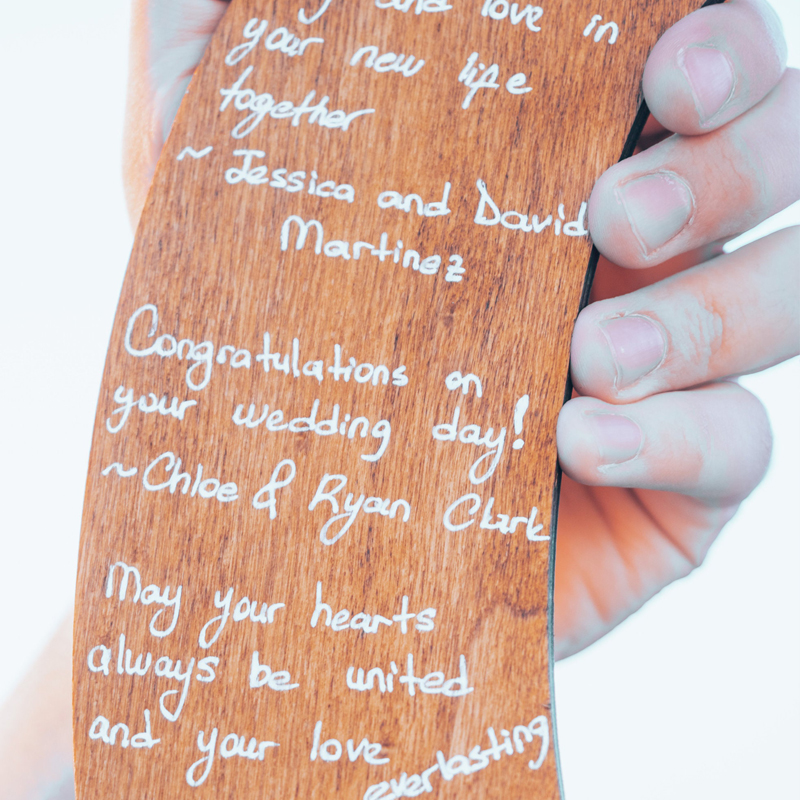 and love in
your new life
together
~ Jessica and David
Martinez
Congratulations on
your wedding day!
~Chloe & Ryan Clark
May your hearts
always be united
and your love
everlasting